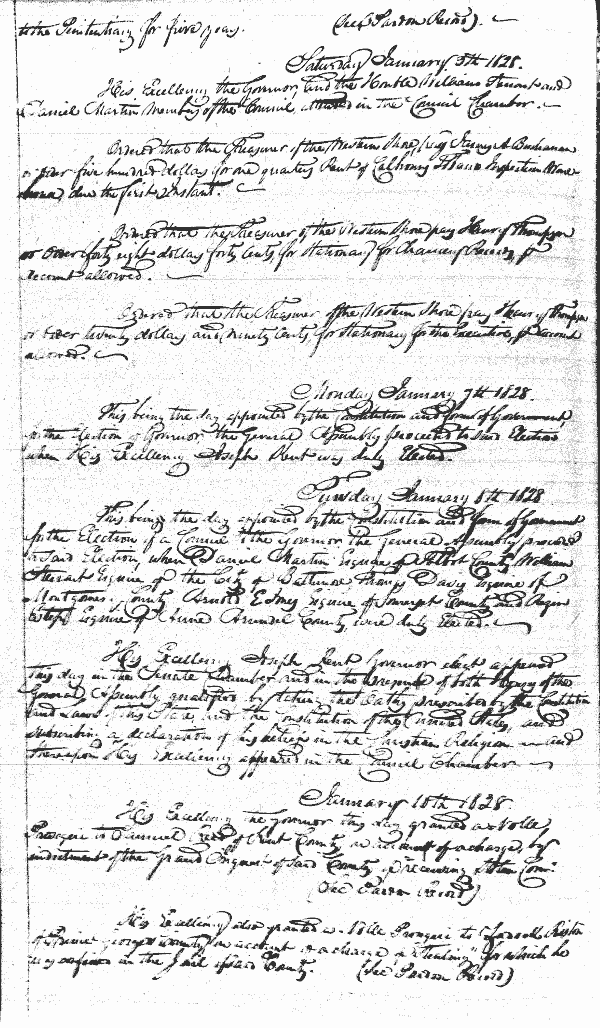 to the Penitentiary for five years. (See Pardon Record).
Saturday January 5th 1828.
His Excellency the Governor, and the Honble William Stewart and
Daniel Martin Members of the Council, in the Council Chamber.
Ordered that the Treasurer of the Western Shore pay James A Buchanan
or order five hundred dollars for one quarters Rent of Tobacco Inspection Ware
house, due the first Instant.
Ordered that the Treasurer of the Western Shore pay Henry Thompson
or order forty eight dollars forty Cents, for Stationary for Chancery Records, pr
account allowed.
Ordered that the Treasurer of the Western Shore pay Henry Thompson
or order twenty dollars and ninety Cents, for Stationary for the Executive, pr account
allowed.
Monday January 7th 1828.
This being the day appointed by the Constitution and form of Government,
for the Election of Governor, the General Assembly proceeded to said Election
when His Excellency Joseph Kent was duly Elected.
Tuesday January 8th 1828
This being the day appointed by the Constitution and form of Government
for the Election of a Council to the Governor the General Assembly proceeded
to said Election, when Daniel Martin Esquire of Talbot County, William
Stewart Esquire of the City of Baltimore Thomas Davis Esquire of
Montgomery County Arnold E Jones Esquire of Somerset County and
Estep Esquire of Anne Arundel County, were duly Elected.
His Excellency Joseph Kent Governor elect appeared
this day in the Senate Chamber and in the presence of both houses of the
General Assembly qualified by taking the Oaths prescribed by the Constitution
and Laws of this State, and the Constitution of the United States, and
subscribing a declaration of his belief in the Christian Religion and
thereupon His Excellency appeared in the Council Chamber
January 10th 1828.
His Excellency the Governor this day granted a Nolle
Prosequi to Samuel of Kent County, on account of a charge by
indictment of the Grand Inquest of said County of receiving stolen
(See Pardon Record)
His Excellency also granted a Nolle Prosequi to
of Prince georges County on account of a charge of "Stealing" for which he
was confined in the Jail of said County. (See Pardon Record)